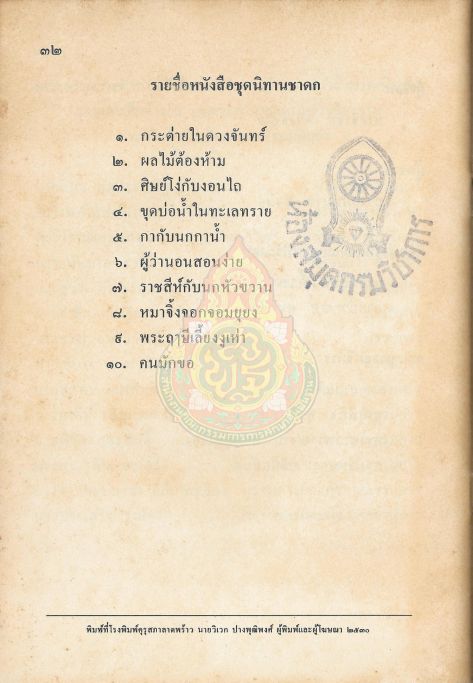 ๓๒
รายชื่อหนังสือชุดนิทานชาดก
๑. กระต่ายในดวงจันทร์
๒. ผลไม้ต้องห้าม
๓. ศิษย์โง่กับงอนไถ
๔. ขุดบ่อน้ำในทะเลทราย
๕. กากับนกกาน้ำ
๖. ผู้ว่านอนสอนง่าย
๗. ราชสีห์กับนกหัวขวาน
๘. หมาจิ้งจอกจอมยุยง
๙. พระฤๅษีเลี้ยงงูเห่า
๑๐. คนมักขอ
ห้องสมุดกรมวิชาการ
พิมพ์ที่โรงพิมพ์คุรุสภาลาดพร้าว นายวิเวก ปางพุฒิพงศ์ ผู้พิมพ์และผู้โฆษณา ๒๕๓๐